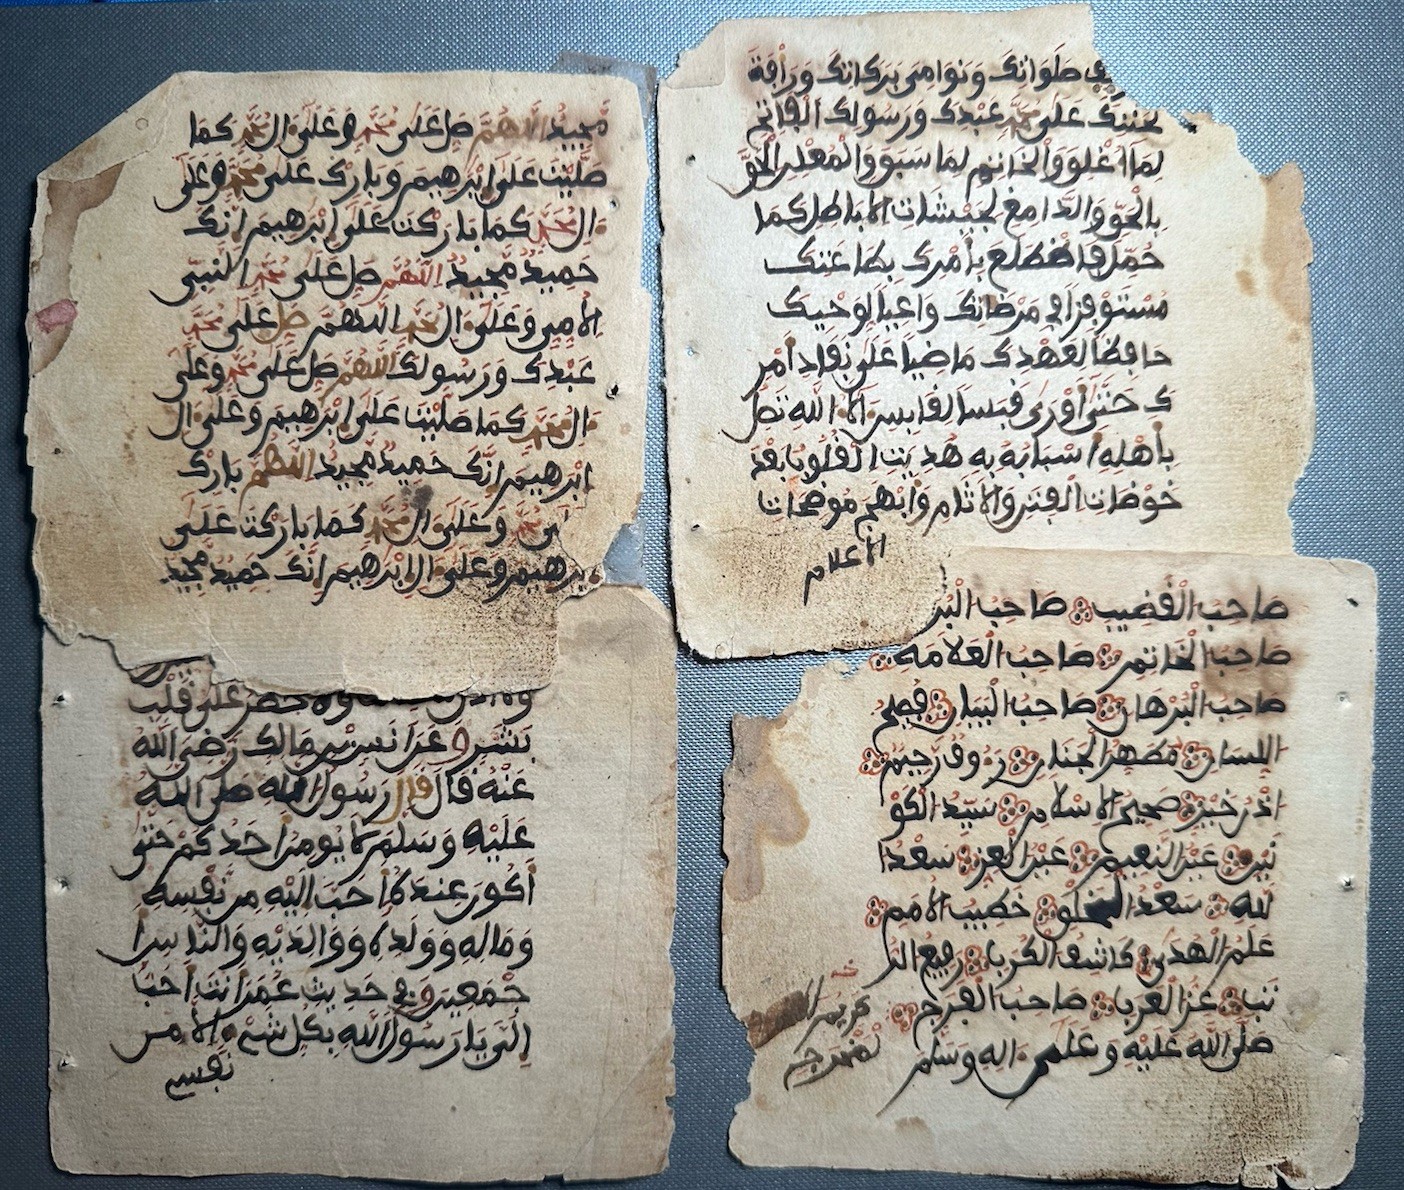 مجيد اللهم صل على محمد وعلى ءال محمد كما
صليت على إبرهيم وبارك على محمد وعلى
ءال محمد كما باركت على إبرهيم إنك
حميد مجيد اللهم صل على محمد النبي
الأمي وعلى ءال محمد اللهم صل على محمد
عبدك ورسولك اللهم صل على محمد وعلى
ءال محمد كما صليت على إبرهيم وعلى ءال
إبرهيم إنك حميد مجيد اللهم بارك
على محمد وعلى ءال محمد كما باركت على
إبرهيم وعلى ءال إبرهيم إنك حميد مجيد
صلواتك ونوامي بركاتك ورأفة
تحننك على محمد عبدك ورسولك الفاتح
لما أغلق والخاتم لما سبق والمعلن الحق
بالحق والدامغ لجيشات الأباطل كما
حمل فاضطلع بأمرك بطاعتك
مستوفزا في مرضاتك واعيا لوحيك
حافظا لعهدك ماضيا على نفاذ أمر
ك حتى أورى قبسا لقابس ءالاء الله تصل
بأهله أسبابه به هديت القلوب بعد
خوضات الفتن والإثم وأبهج موضحات
الأعلام
ولا خطر على قلب
بشر وعن أنس بن مالك رضي الله
عنه قال قال رسول الله صلى الله
عليه وسلم لا يومن أحدكم حتى
أكون عنده أحب إليه من نفسه
وماله وولده ووالديه والناس أ
جمعين وفي حديث عمر أنت أحب
إلي يا رسول الله بكل شيء إلا من
نفسي
صاحب القضيب صاحب البر
صاحب الخاتم صاحب العلامة
صاحب البرهان صاحب البيان فصيح
اللسان مطهر الجنان رءوف رحيم
أذن خير صحيح الإسلام سيد الكو
نين عين النعيم عين العز سعد ا
لله سعد الخلق خطيب الأمم
علم الهدى كاشف الكرب رفيع الر
تب عز العرب صاحب الفرج
صلى الله عليه وعلى ءاله وسلم
كريم